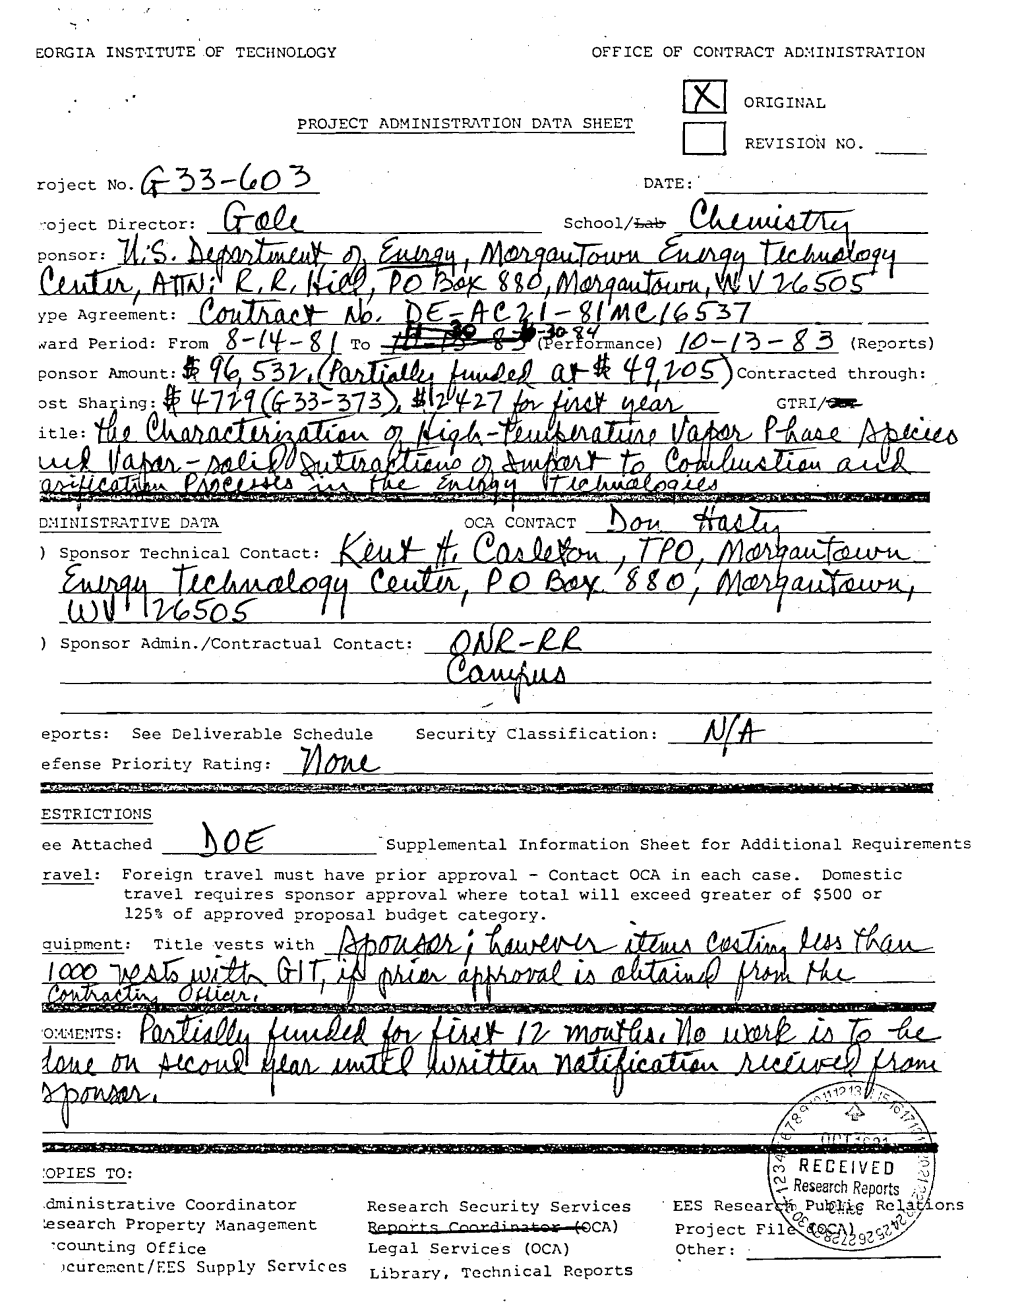 EORGIA INSTITUTE OF TECHNOLOGY OFFICE OF CONTRACT ADMINISTRATION
X ORIGINAL
PROJECT ADMINISTRATION DATA SHEET
REVISION NO.
roject No. G-33-603 DATE:
roject Director: Gole School/Lab Chemistry
ponsor: U.S. Department of Energy, Morgantown Energy Technology
Center, ATTN: R.R. Hill, PO Box 880, Morgantown, WV 26505
ype Agreement: Contract No. DE-AC21-81MC16537
ward Period: From 8-14-81 To 6-30-84 (Performance) 10-13-83 (Reports)
ponsor Amount: $96,532, (Partially funded at $49,205) Contracted through:
ost Sharing: $4729 (G-33-373), $2427 for first year GTRI/
itle: The Characterization of High-Temperature Vapor Phase Species
and Vapor-Solid Interactions of Import to Combustion and
asification Processes in the Energy Technologies
DMINISTRATIVE DATA OCA CONTACT Don Hasty
) Sponsor Technical Contact: Kent H. Casleton, TPO, Morgantown
Energy Technology Center, PO Box 880, Morgantown,
WV 26505
) Sponsor Admin./Contractual Contact: ONR-RR
Campus
eports: See Deliverable Schedule Security Classification: N/A
efense Priority Rating: None
ESTRICTIONS
ee Attached DOE Supplemental Information Sheet for Additional Requirements
ravel: Foreign travel must have prior approval - Contact OCA in each case. Domestic
travel requires sponsor approval where total will exceed greater of $500 or
125% of approved proposal budget category.
quipment: Title vests with Sponsor; however items costing less than
1000 vests with GIT, if prior approval is obtained from the
Contracting Officer.
OMMENTS: Partially funded for first 12 months. No work is to be
done on second year until written notification received from
sponsor.
RECEIVED
Research Reports
Office
OPIES TO:
dministrative Coordinator Research Security Services EES Research Public Relations
esearch Property Management Reports Coordinator (OCA) Project File (OCA)
ccounting Office Legal Services (OCA) Other:
ocurement/EES Supply Services Library, Technical Reports